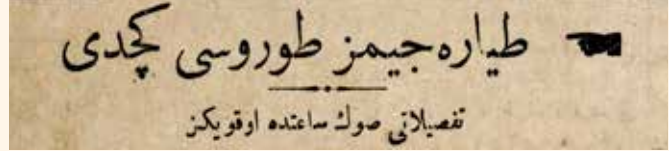 طیاره‌جیمز طوروسی کچدی
تفصیلاتی صوڭ ساعتده اوقویکز